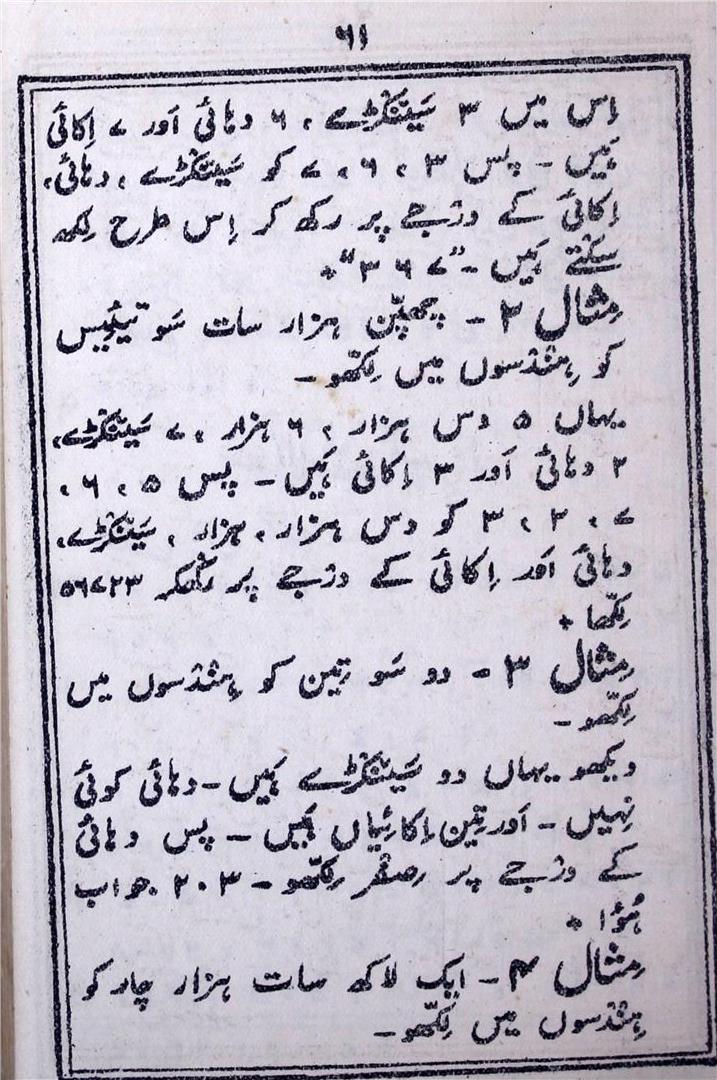 ۶۱
اِس میں ۳ سَینکڑے، ۶ دہائی اَور ۷ اِکائی
ہَیں ۔ پس ۳، ۶، ۷ کو سَینکڑے، دہائی،
اِکائی کے درجے پر رکھ کر اِس طرح لِکھ
سکتے ہَیں ۔ ”۳۶۷“ +
مِثال ۲ ۔ چھپّن ہزار سات سَو تیئیس
کو ہِندسوں میں لِکھّو۔
یہاں ۵ دس ہزار، ۶ ہزار، ۷ سَینکڑے،
۲ دہائی اَور ۳ اِکائی ہَیں ۔ پس ۵، ۶،
۷، ۲، ۳ کو دس ہزار، ہزار، سَینکڑے،
دہائی اَور اِکائی کے درجے پر رکھکر ۵۶۷۲۳
لِکھا +
مِثال ۳ ۔ دو سَو تِین کو ہِندسوں میں
لِکھّو۔
دیکھو یہاں دو سَینکڑے ہَیں ۔ دہائی کوئی
نہِیں ۔ اَور تِین اِکائیاں ہَیں ۔ پس دہائی
کے درجے پر صِفر لِکھّو ۔ ۲۰۳ جواب
ہُؤا +
مِثال ۴ ۔ ایک لاکھ سات ہزار چار کو
ہِندسوں میں لِکھّو۔